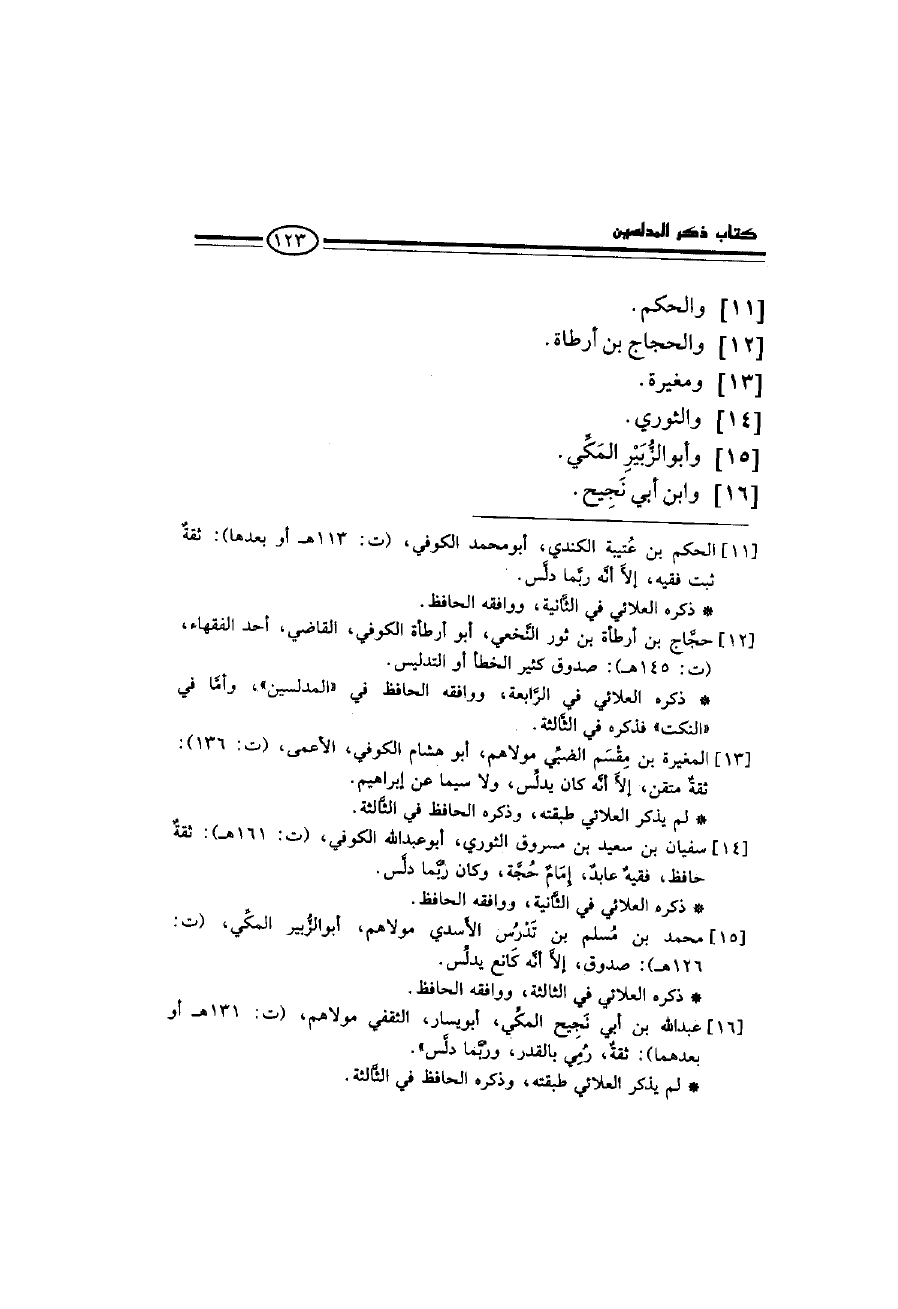 كتاب ذكر المدلسين ١٢٣
[١١] والحكم.
[١٢] والحجاج بن أرطاة.
[١٣] ومغيرة.
[١٤] والثوري.
[١٥] وأبوالزُّبَيْرِ المَكِّي.
[١٦] وابن أبي نَجِيح.
[١١] الحكم بن عُتيبة الكندي، أبومحمد الكوفي، (ت: ١١٣هـ أو بعدها): ثقةٌ
ثبت فقيه، إلاَّ أنَّه ربَّما دلَّس.
* ذكره العلائي في الثَّانية، ووافقه الحافظ.
[١٢] حجَّاج بن أرطأة بن ثور النَّخعي، أبو أرطأة الكوفي، القاضي، أحد الفقهاء،
(ت: ١٤٥هـ): صدوق كثير الخطأ أو التدليس.
* ذكره العلائي في الرَّابعة، ووافقه الحافظ في «المدلسين»، وأمَّا في
«النكت» فذكره في الثَّالثة.
[١٣] المغيرة بن مِقْسَم الضبِّي مولاهم، أبو هشام الكوفي، الأعمى، (ت: ١٣٦):
ثقةٌ متقن، إلاَّ أنَّه كان يدلِّس، ولا سيما عن إبراهيم.
* لم يذكر العلائي طبقته، وذكره الحافظ في الثَّالثة.
[١٤] سفيان بن سعيد بن مسروق الثوري، أبوعبدالله الكوفي، (ت: ١٦١هـ): ثقةٌ
حافظ، فقيهٌ عابدٌ، إمَامٌ حُجَّة، وكان رُبَّما دلَّس.
* ذكره العلائي في الثَّانية، ووافقه الحافظ.
[١٥] محمد بن مُسلم بن تَدْرُس الأسدي مولاهم، أبوالزُّبير المكِّي، (ت:
١٢٦هـ): صدوق، إلاَّ أنَّه كَانع يدلِّس.
* ذكره العلائي في الثالثة، ووافقه الحافظ.
[١٦] عبدالله بن أبي نَجِيح المكِّي، أبويسار، الثقفي مولاهم، (ت: ١٣١هـ أو
بعدهما): ثقةٌ، رُمِي بالقدر، ورُبَّما دلَّس».
* لم يذكر العلائي طبقته، وذكره الحافظ في الثَّالثة.